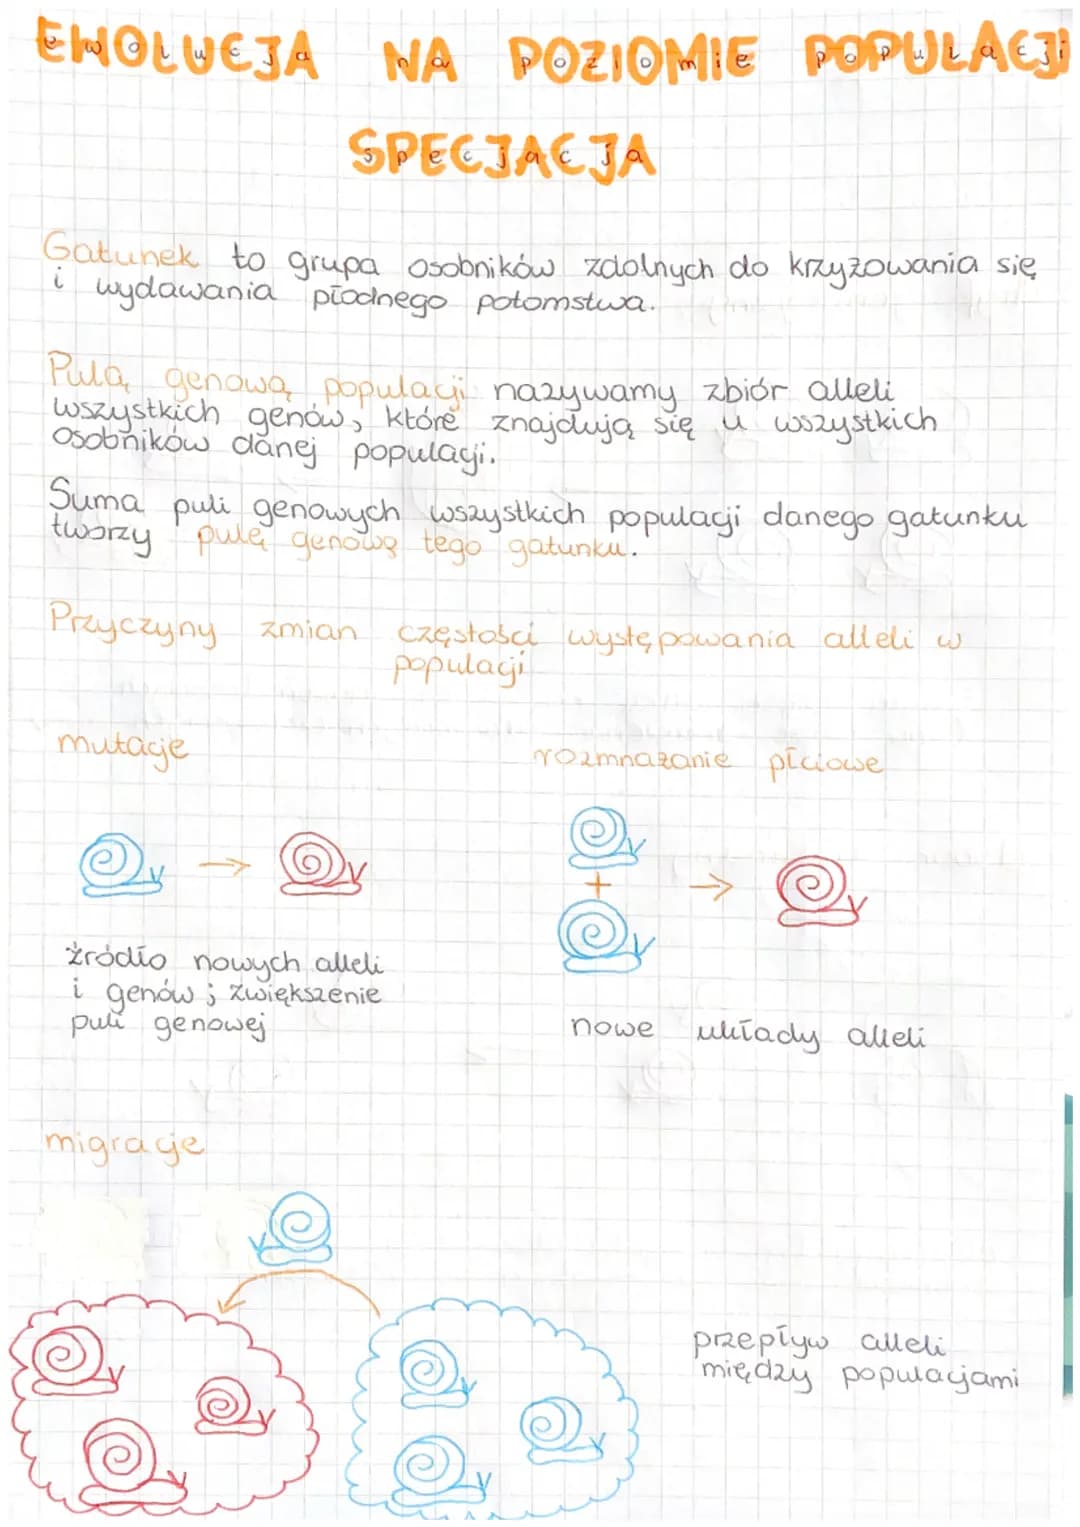 EWOLUCJA NA POZIOMIE POPULACJI
SPECJACJA
Gatunek to grupa osobników zdolnych do krzyżowania się
i wydawania płodnego potomstwa.
Pulą genową populacji nazywamy zbiór alleli
wszystkich genów, które znajdują się u wszystkich
osobników danej populacji.
Suma puli genowych wszystkich populacji danego gatunku
tworzy pulę genową tego gatunku.
Przyczyny zmian częstości występowania alleli w
populacji
mutacje
rozmnażanie płciowe
+
źródło nowych alleli
i genów; zwiększenie
puli genowej
nowe układy alleli
migracje
przepływ alleli
między populacjami